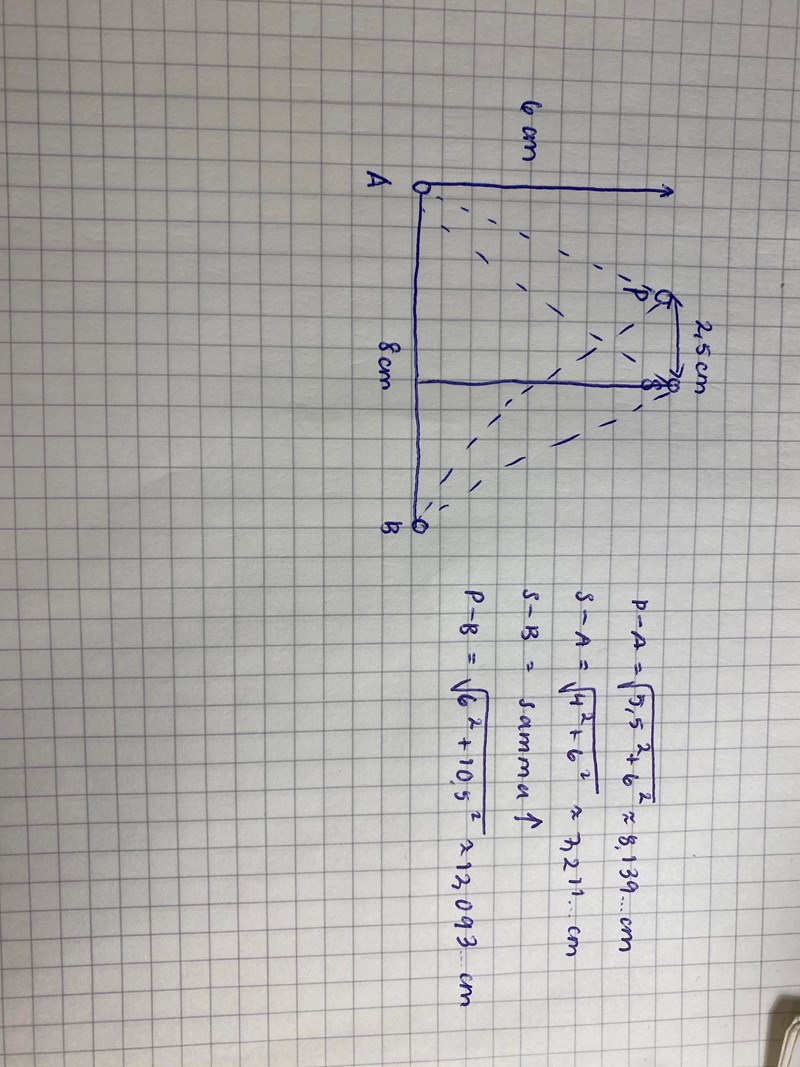 2,5 cm
6 cm
P
S
A
8 cm
B
P-A = √5,5² + 6² ≈ 8,139... cm
S-A = √4² + 6² ≈ 7,211... cm
S-B = samma ↑
P-B = √6² + 10,5² ≈ 12,093... cm